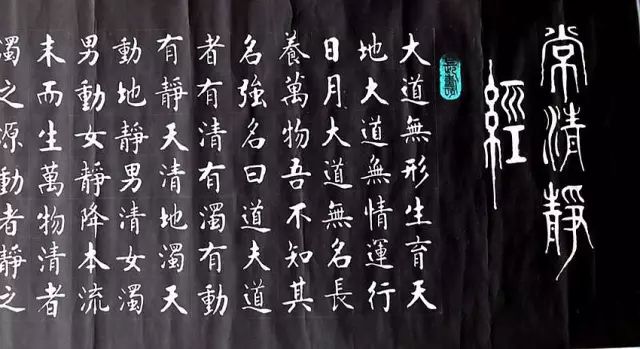 常清靜
經
大道無形生育天
地大道無情運行
日月大道無名長
養萬物吾不知其
名強名曰道夫道
者有清有濁有動
有靜天清地濁天
動地靜男清女濁
男動女靜降本流
末而生萬物清者
濁之源動者靜之